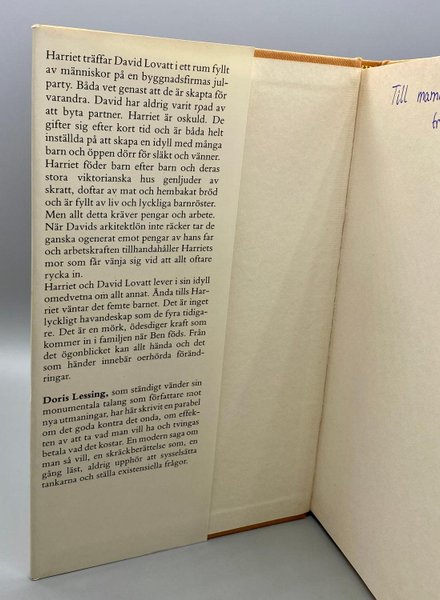 Harriet träffar David Lovatt i ett rum fyllt
av människor på en byggnadsfirmas jul-
party. Båda vet genast att de är skapta för
varandra. David har aldrig varit rpad av
att byta partner. Harriet är oskuld. De
gifter sig efter kort tid och är båda helt
inställda på att skapa en idyll med många
barn och öppen dörr för släkt och vänner.
Harriet föder barn efter barn och deras
stora viktorianska hus genljuder av
skratt, doftar av mat och hembakat bröd
och är fyllt av liv och lyckliga barnröster.
Men allt detta kräver pengar och arbete.
När Davids arkitektlön inte räcker tar de
ganska ogenerat emot pengar av hans far
och arbetskraften tillhandahåller Harriets
mor som får vänja sig vid att allt oftare
rycka in.
Harriet och David Lovatt lever i sin idyll
omedvetna om allt annat. Ända tills Har-
riet väntar det femte barnet. Det är inget
lyckligt havandeskap som de fyra tidiga-
re. Det är en mörk, ödesdiger kraft som
kommer in i familjen när Ben föds. Från
det ögonblicket kan allt hända och det
som händer innebär oerhörda föränd-
ringar.
Doris Lessing, som ständigt vänder sin
monumentala talang som författare mot
nya utmaningar, har här skrivit en parabel
om det goda kontra det onda, om effek-
ten av att ta vad man vill ha och tvingas
betala vad det kostar. En modern saga om
man så vill, en skräckberättelse som, en
gång läst, aldrig upphör att sysselsätta
tankarna och ställa existensiella frågor.
Till